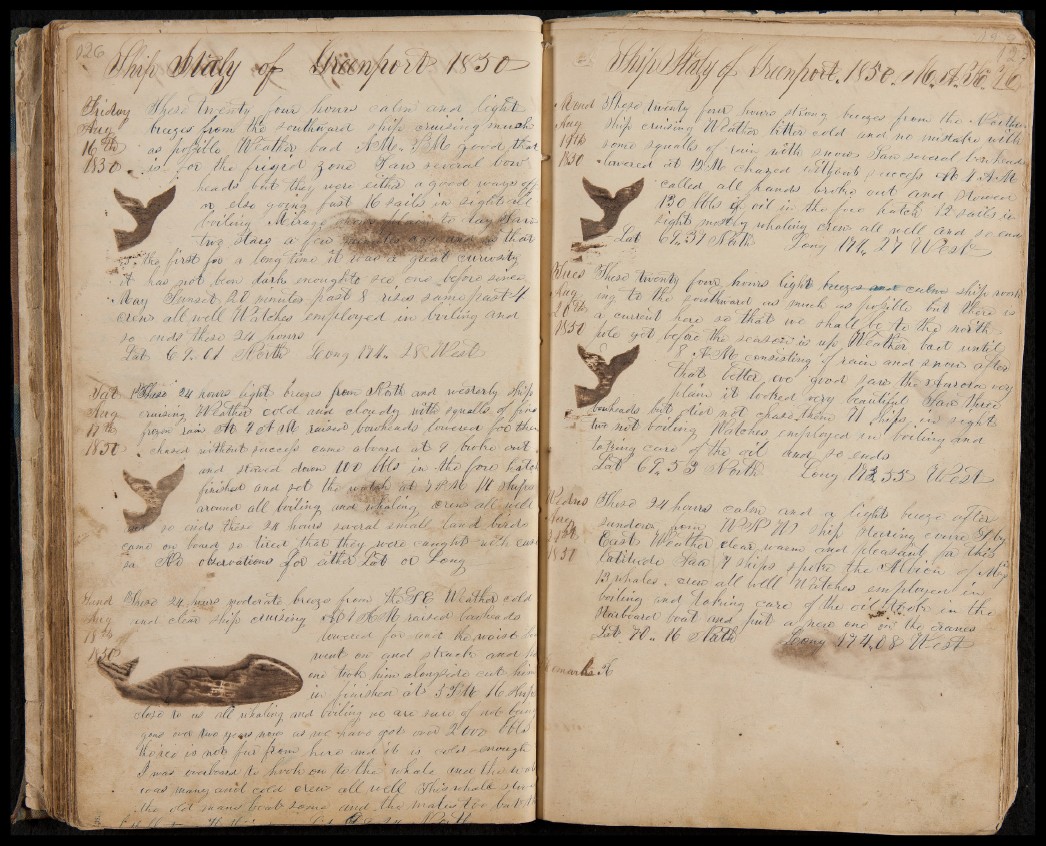 126
Ship Italy of Greenport 1850
Friday These twenty four hours calm and light
Aug breezes from the southward ship cruising much
16th as possible Weather bad A.M. P.M good that
1850 is for the frigid zone Saw several bow
heads but they were either a good ways off
or else going fast 16 sails in sight all
boiling Mirage to day Saw
two Stars a few
the first for a long time it was a great curiosity
it has not been dark enough to see one before since
May Sunset 20 minutes past 8 rises same past 4
crew all well Watches employed in boiling and
so ends these 24 hours
Lat 69.01 North Long 174. 28 West
Sat These 24 hours light breezes from North and westerly Ship
Aug cruising Weather cold and cloudy with squalls of fine
17th frozen rain At 7 A M raised bowheads lowered for them
1850 chased without success came aboard at 9 broke out
and stowed down 100 bbls in the fore hatch
finished and set the watch at 7 P M 14 ships
around all boiling and whaling crew all well
so ends these 24 hours several small land birds
came on board so tired that they were caught with ease
No observations for either Lat or Long
Sund These 24 hours moderate breeze from Weather cold
Aug and clear ship cruising At 1 A M raised bowheads
18th lowered for and the waist
1850 went on and struck and
one took him alongside cut him
in finished at 3 P M 16 Ships
close to us all whaling and boiling we are sure of not being
gone over two years now as we have got over 2000 bbls
there is not far from here and it is cold enough
I was overboard to hook on to the whale and the water
was and cold crew all well This whale
the old mans boat same and the mates the
127
Ship Italy of Greenport, 1850.
Mond These twenty four hours strong breezes from the
Aug Ship cruising Weather bitter cold and no mistake with
19th some squalls of rain with snow Saw several bowheads
1850 lowered at 12 M chased without success At 7 A M
called all hands broke out and stowed
130 bbls of oil in the fore hatch 12 sails in
sight mostly whaling crew all well and so ends
Lat 69,37 North Long 174, 27 West
Tues These twenty four hours light breezes and calm ship work
Aug ing to the southward as much as possible but there is
20th a current here so that we shall be to the north
1850 pole yet before the season is up Weather bad until
8 A M consisting of rain and snow after
that better, even good saw the Aurora very
plain it looked very beautiful Saw three
bowheads but did not chase them 21 Ships in sight
two not boiling Watches employed in boiling and
taking care of the oil and so ends
Lat 69,53 North Long West
Wednes These 24 hours calm and a light breeze after
Aug sundown from W N W ship steering
21st East Weather clear warm and pleasant for this
1850 latitude Saw 7 ships spoke the Albion of
13 whales, crew all well Watches employed in
boiling and taking care of the oil in the
Starboard boat and put a new one in the cranes
Lat 70. 16 North Long 174,08 West